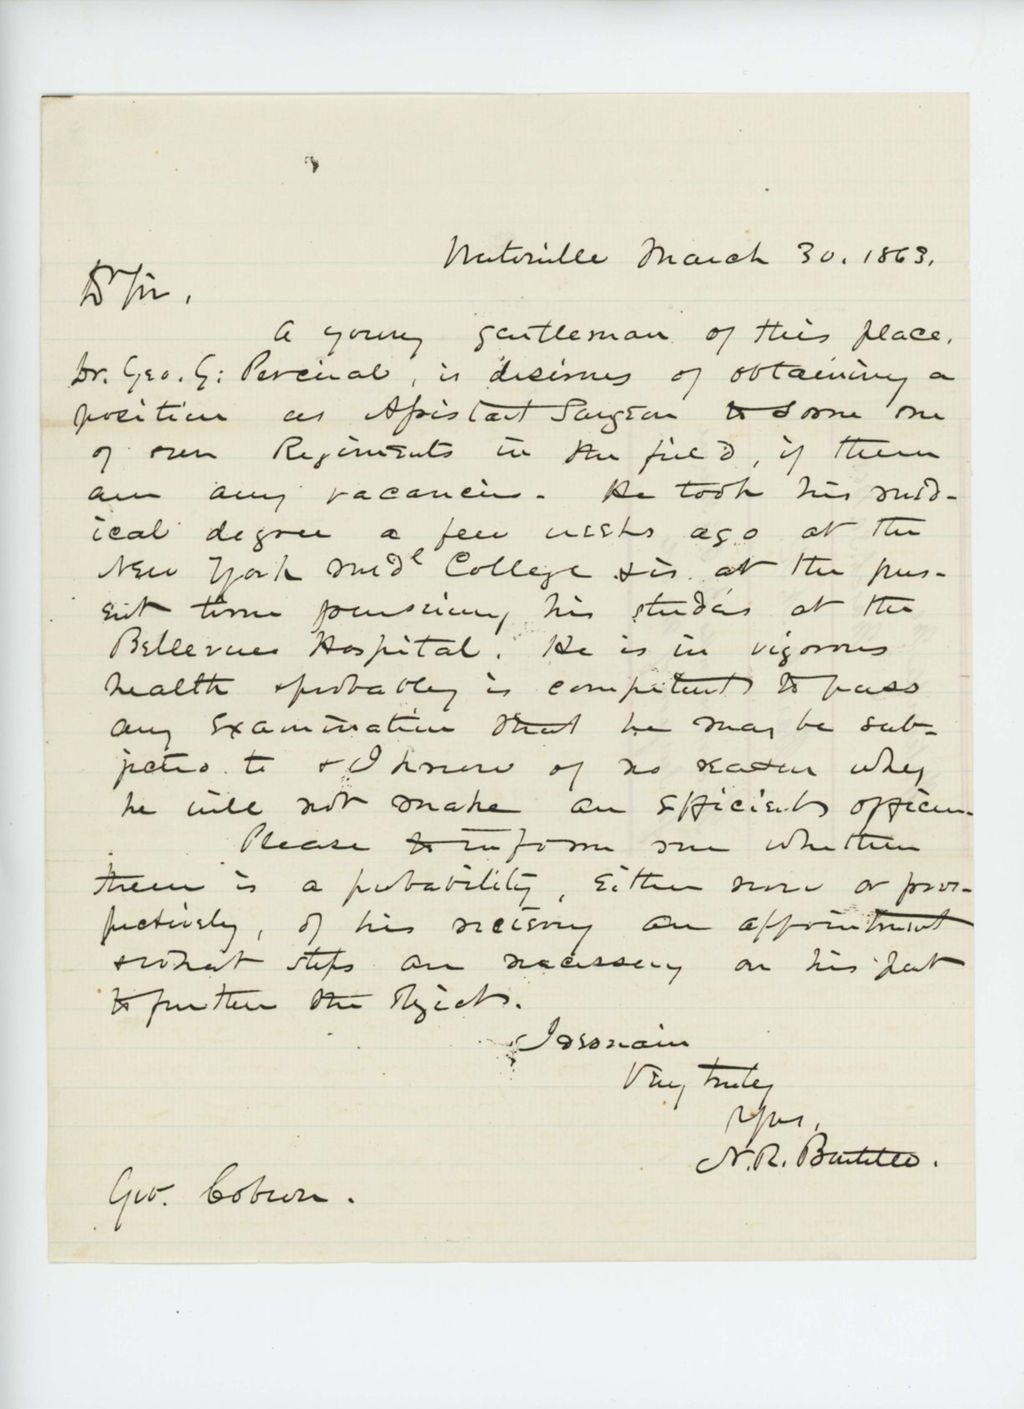 Waterville March 30. 1863.
Dr Sir,
A young gentleman of this place,
Dr. Geo. G. Percival, is desirous of obtaining a
position as Assistant Surgeon to some one
of our Regiments in the field, if there
are any vacancies. He took his med-
ical degree a few weeks ago at the
New York Medl College & is at the pres-
ent time pursuing his studies at the
Bellevue Hospital. He is in vigorous
health & probably is competent to pass
any examination that he may be sub-
jected to & I know of no reason why
he will not make an efficient officer.
Please to inform me whether
there is a probability, either now or pros-
pectively, of his receiving an appointment
& what steps are necessary on his part
to further the object.
I remain
Very truly
Yours,
N. R. Boutelle.
Gov. Coburn.